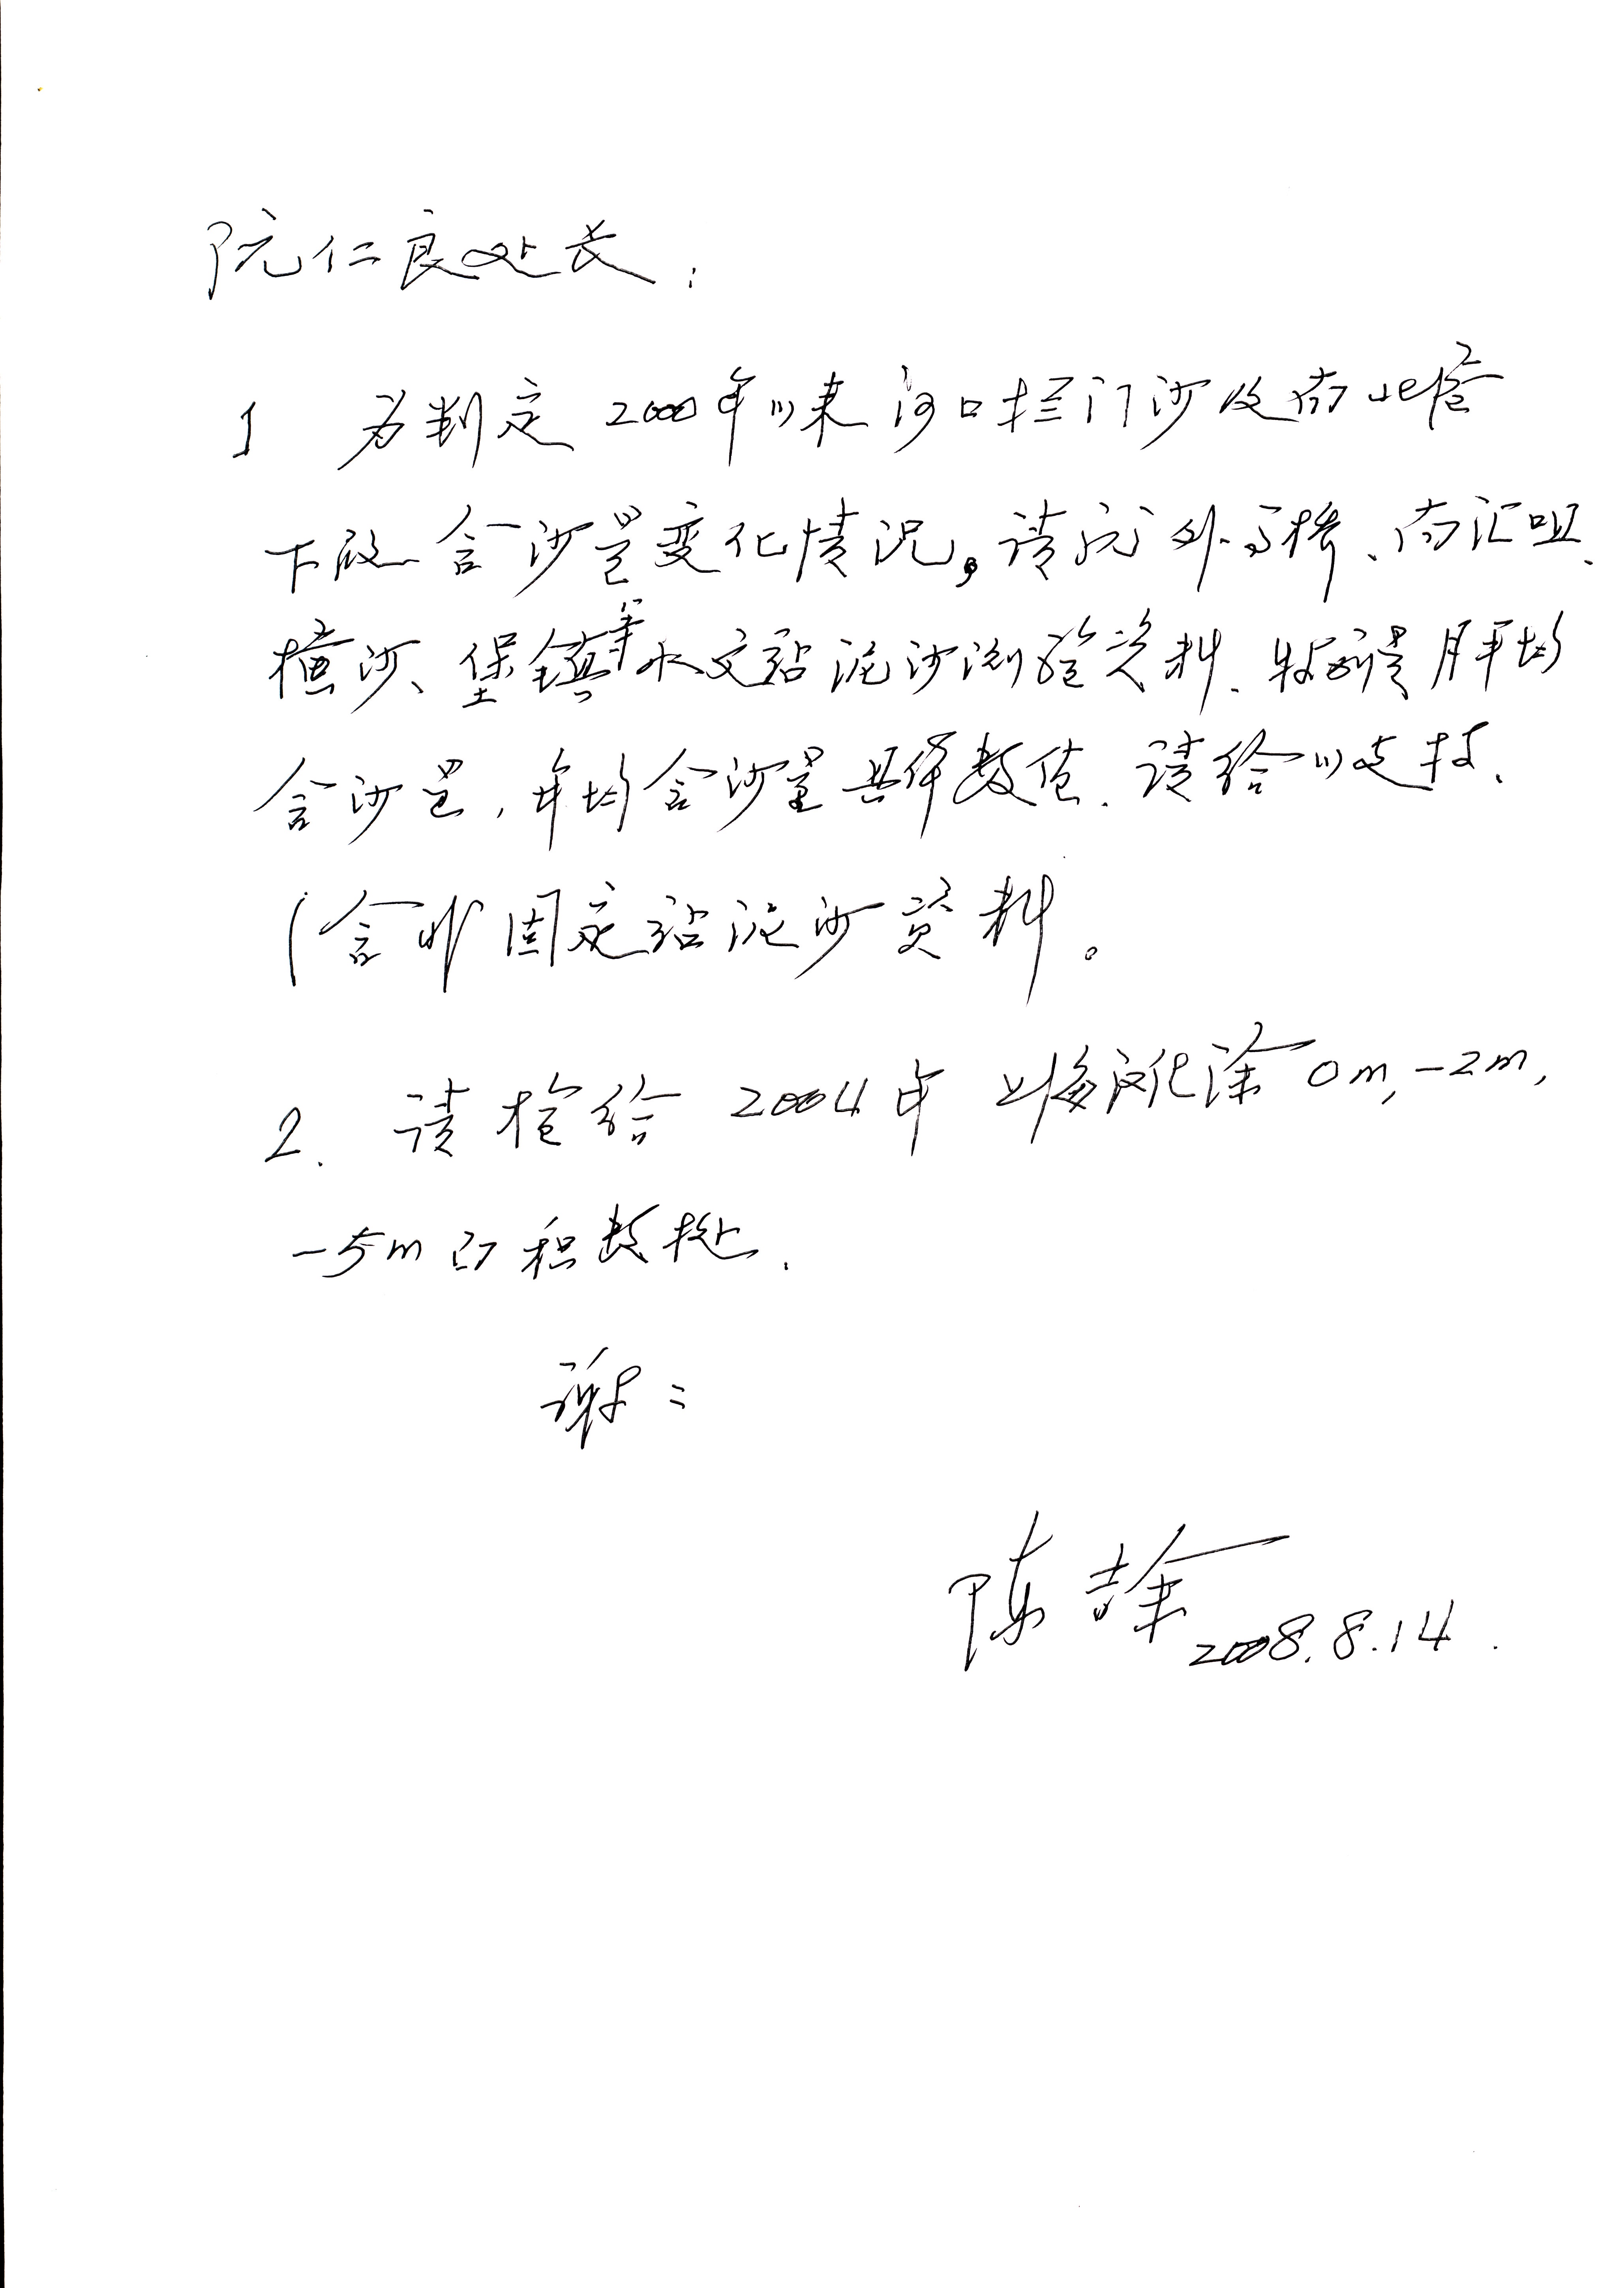 阮仁良处长:
1 为判定2000年以来河口拦门沙及南北港
下段含沙量变化情况。请就外高桥、南汇咀、
横沙、堡镇等水文站泥沙测验资料、特别是月平均
含沙量,年均含沙量具体数值、请给以支持、
(含非固定站泥沙资料。
2. 请抢给2004年上海滩涂0m,-2m,
-5m面积数据.
谢=
陈吉余 2008.8.14.